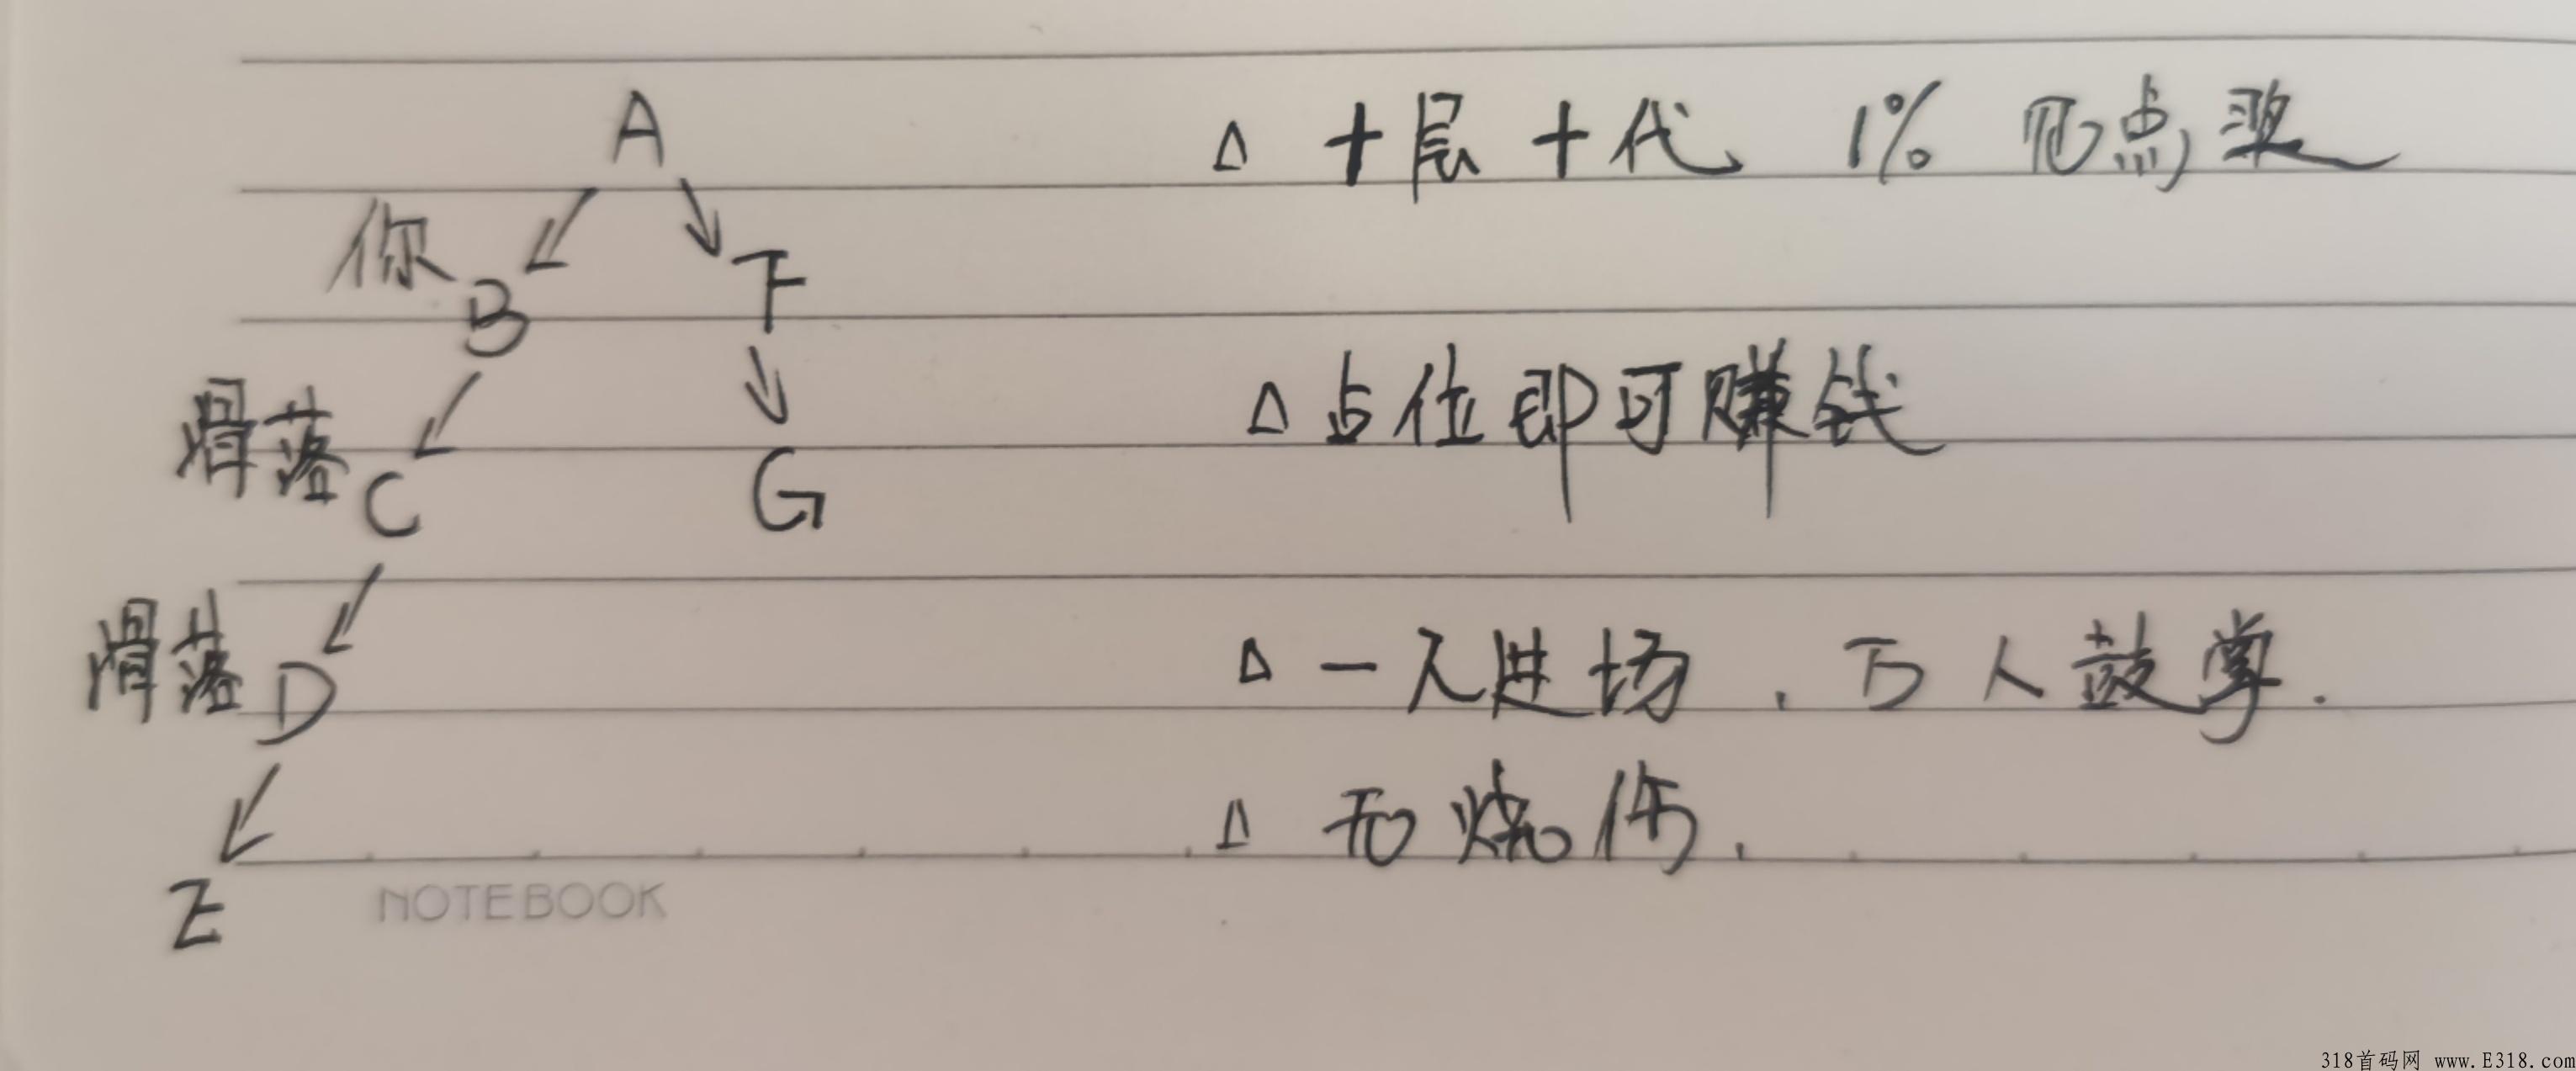 A
△ 十层十代 1% 见点奖
你 B
F
△ 占位即可赚钱
滑落 C
G
滑落 D
△ 一人进场，万人鼓掌.
△ 无烧伤.
E
NOTEBOOK
318首码网 www.E318.com